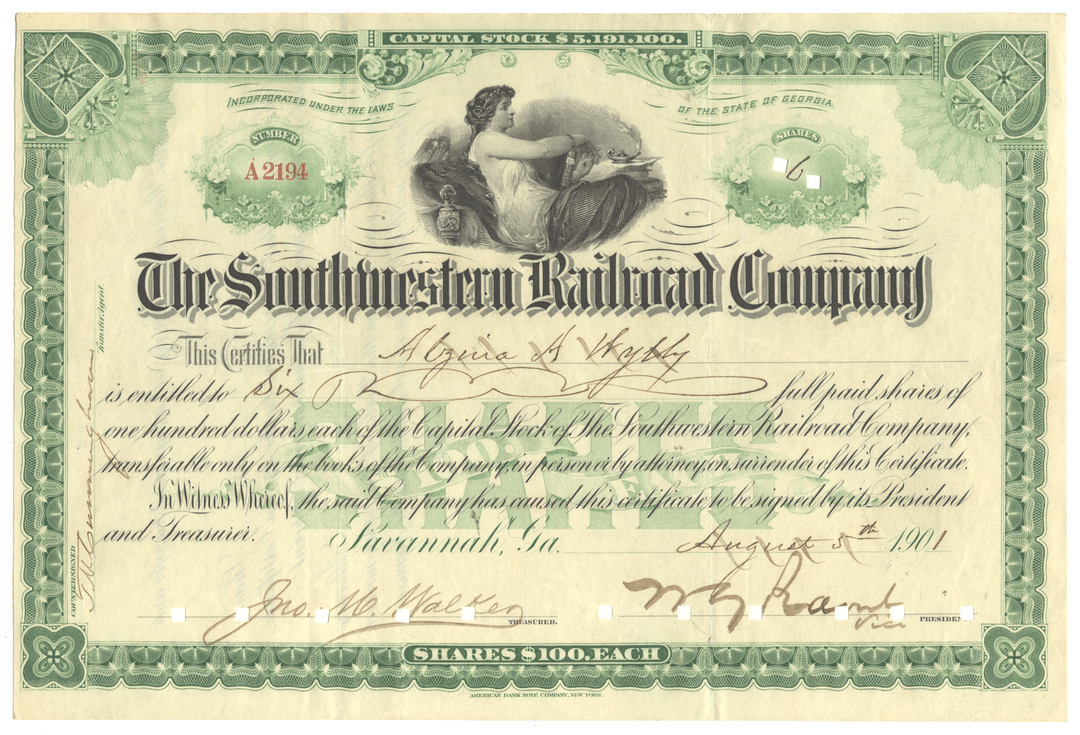 CAPITAL STOCK $5,191,100.
INCORPORATED UNDER THE LAWS OF THE STATE OF GEORGIA
NUMBER
A2194
SHARES
6
The Southwestern Railroad Company
This Certifies That Alzina A Wylly
is entitled to Six full paid shares of
one hundred dollars each of the Capital Stock of The Southwestern Railroad Company,
transferable only on the books of the Company, in person or by attorney, on surrender of this Certificate.
In Witness Whereof, the said Company has caused this certificate to be signed by its President
and Treasurer.
Savannah, Ga. August 5th 1901
Jno. M. Walker
TREASURER.
Vice PRESIDENT
COUNTERSIGNED
Transfer Agent.
SHARES $100. EACH
AMERICAN BANK NOTE COMPANY, NEW YORK.